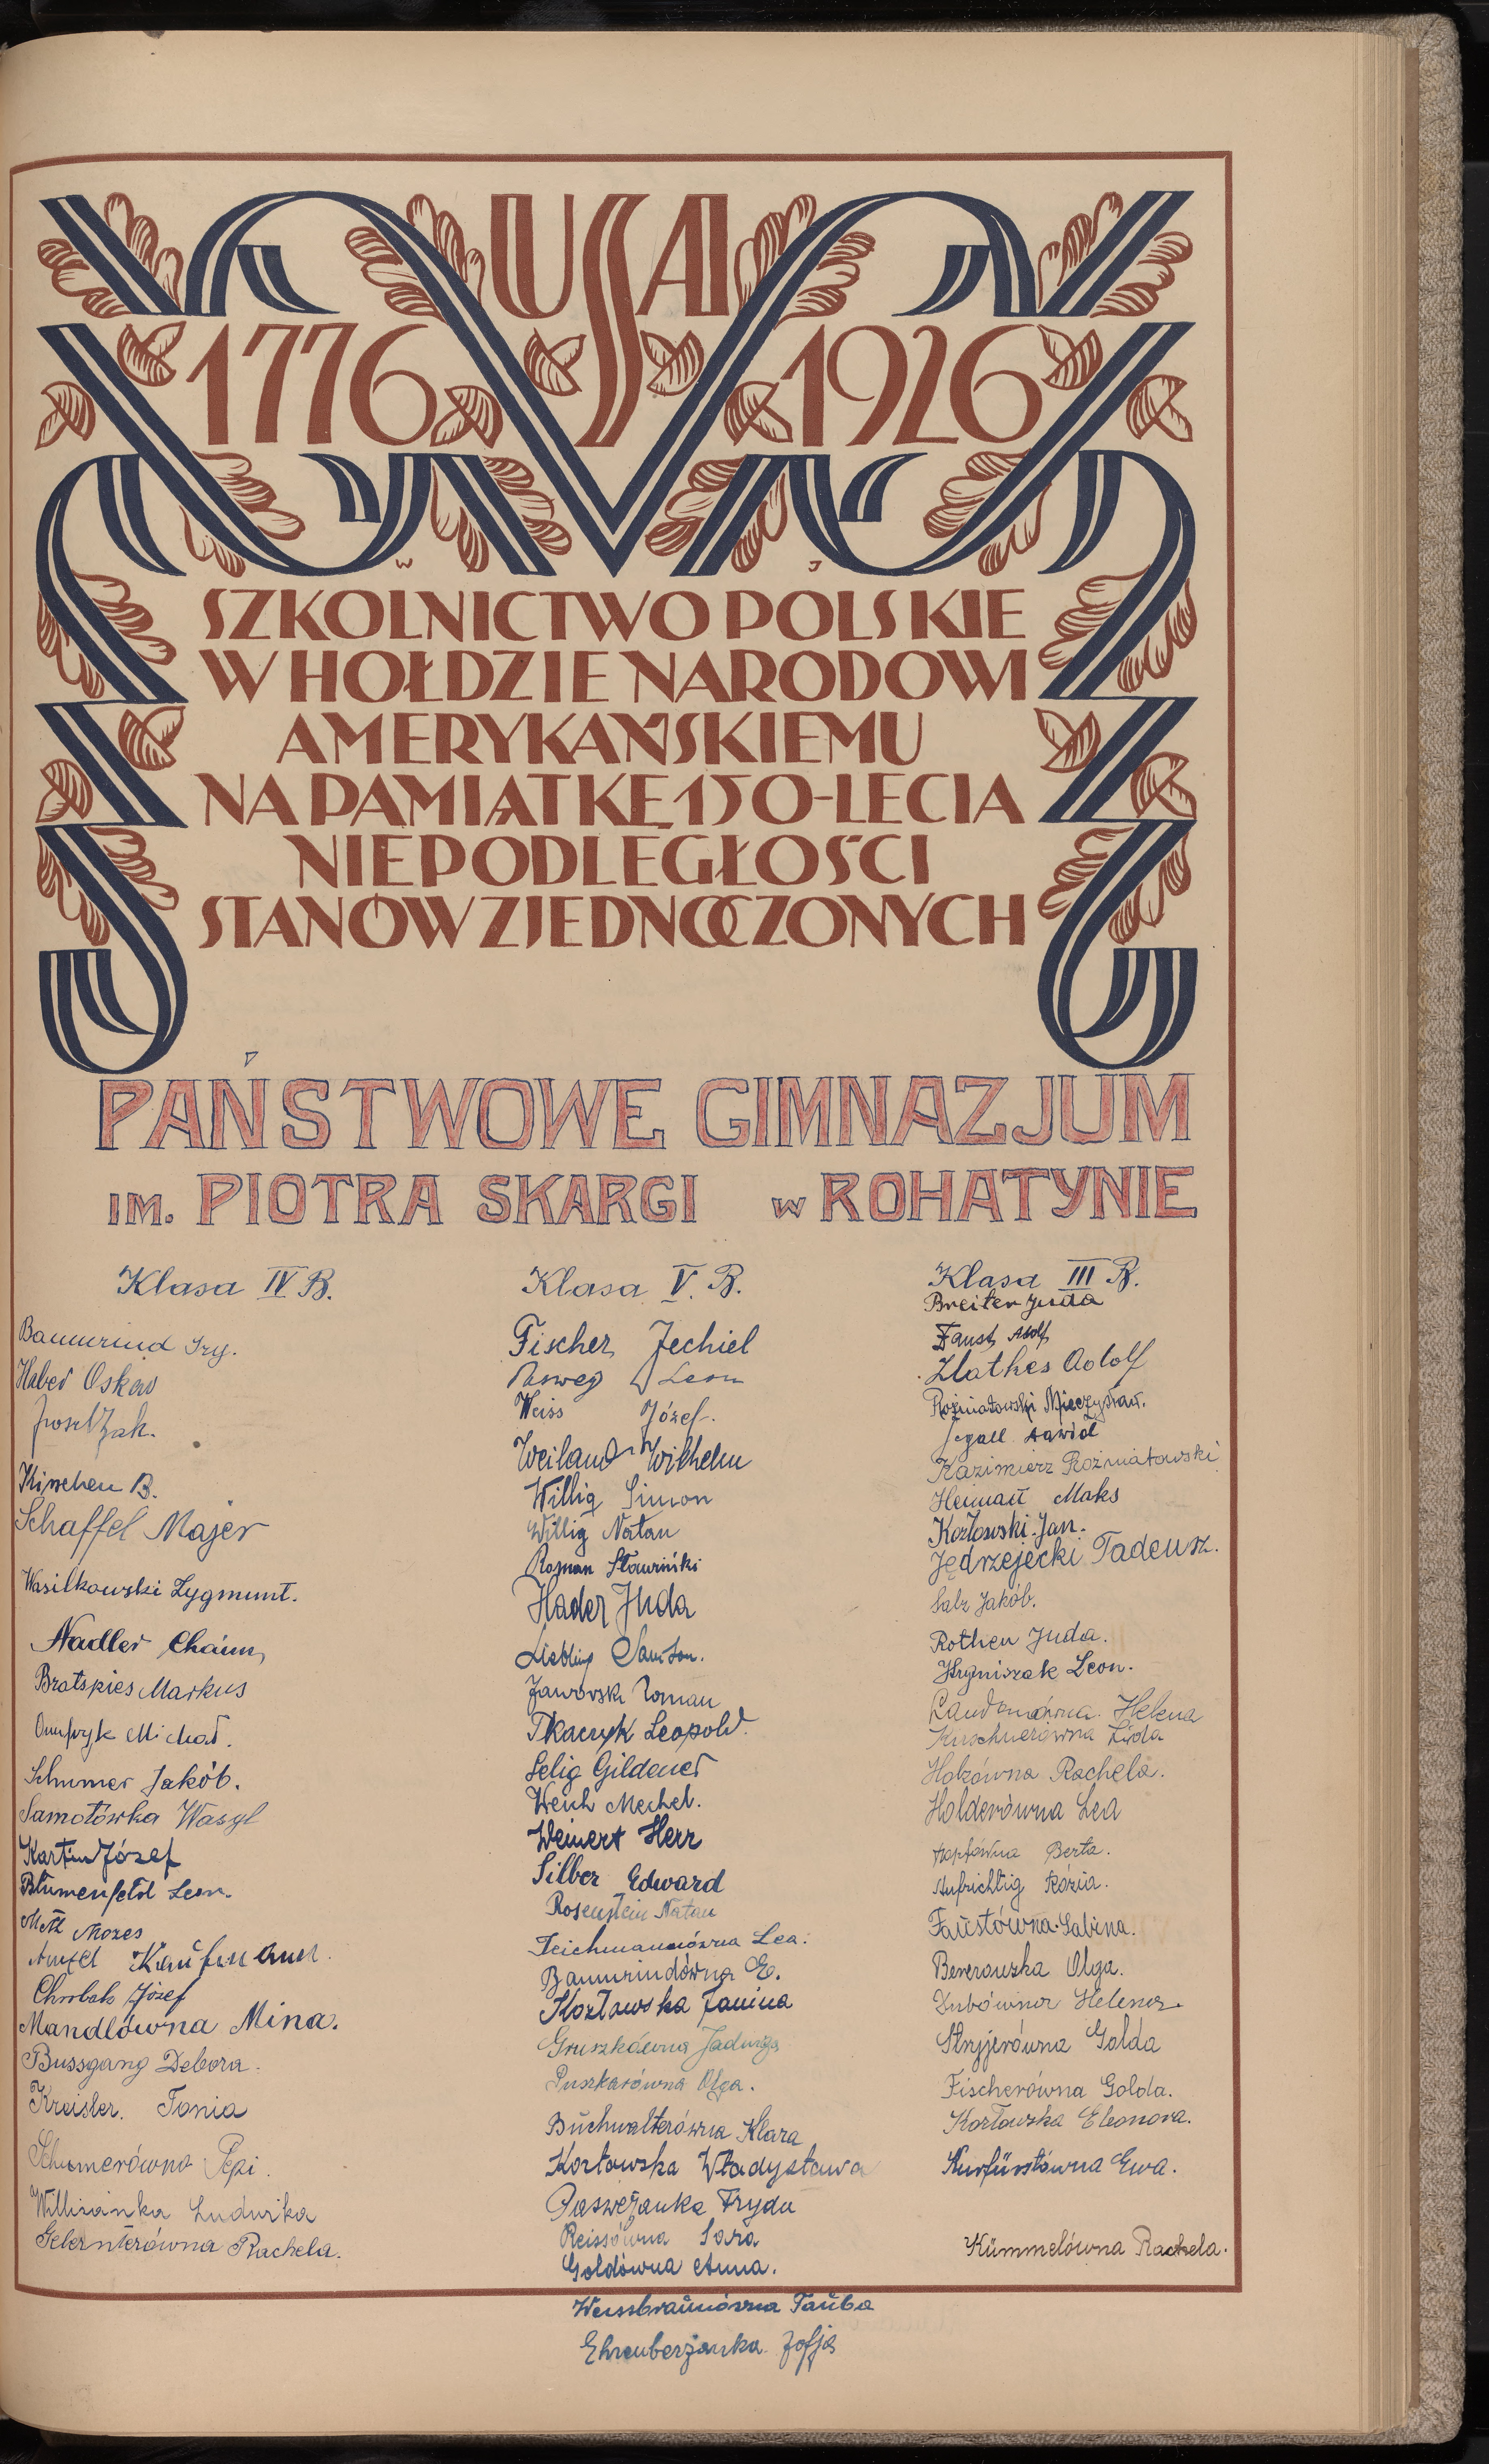 USA
1776 1926
W J
SZKOLNICTWO POLSKIE
W HOŁDZIE NARODOWI
AMERYKAŃSKIEMU
NA PAMIĄTKĘ 150-LECIA
NIEPODLEGŁOŚCI
STANÓW ZJEDNOCZONYCH
PAŃSTWOWE GIMNAZJUM
IM. PIOTRA SKARGI w ROHATYNIE
Klasa IV B.
Baumrind Izy.
Haber Oskar
Josel Żak.
Kirschen B.
Schaffel Majer
Wasilkowski Zygmunt.
Nadler Chaim
Bratspies Markus
Onufryk Michał.
Schumer Jakób.
Samotówka Wasyl
Kartin Józef
Blumenfeld Leon.
Mozes
Kaufmann
Chrobak Józef
Mandlówna Mina.
Bussgang Debora.
Kreisler. Tonia
Schumerówna Pepi.
Willizanka Ludwika
Gelernterówna Rachela.
Klasa V. B.
Fischer Jechiel
Pasweg Leon
Weiss Józef.
Weiland Wilhelm
Willig Simon
Willig Natan
Roman Sławiński
Hader Juda
Liebling Samson.
Jaworski Roman
Tkaczyk Leopold.
Selig Gildener
Weich Mechel.
Weinert Herz
Silber Edward
Rosenstein Natan
Teichmannówna Lea.
Baumrindówna E.
Kozłowska Janina
Gruszkówna Jadwiga
Puszkarówna Olga.
Buchwalterówna Klara
Kozłowska Władysława
Pasweżanka Fryda
Reissówna Sara
Goldówna Anna.
Weissbraunówna Tauba
Ehrenberżanka Zofja
Klasa III B.
Breiter Juda
Faust Adolf
Zlathes Adolf
Rożniatowski Mieczysław.
Segall Dawid
Kazimierz Rożniatowski
Heiman Maks
Kozłowski Jan.
Jędrzejecki Tadeusz.
Salz Jakób.
Rothen Juda.
Hryniszak Leon.
Landmanówna. Helena
Kirschnerówna Lida
Holzówna Rachela.
Holderówna Lea
Hopfówna Berta.
Aufrichtig Rózia.
Faustówna Sabina.
Berezowska Olga.
Zubówna Helena.
Stryjerówna Golda
Fischerówna Golda.
Kozłowska Eleonora.
Kurfürstówna Ewa.
Kümmelówna Rachela.